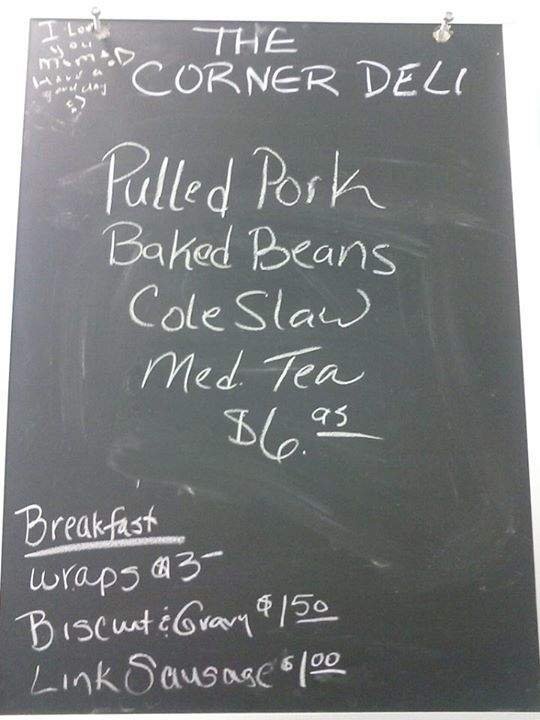 I Love
you
mom :D
have a
good day
:)
THE
CORNER DELI
Pulled Pork
Baked Beans
Cole Slaw
Med. Tea
$6.95
Breakfast
wraps $3-
Biscuit & Gravy $1 50
Link Sausage $1 00